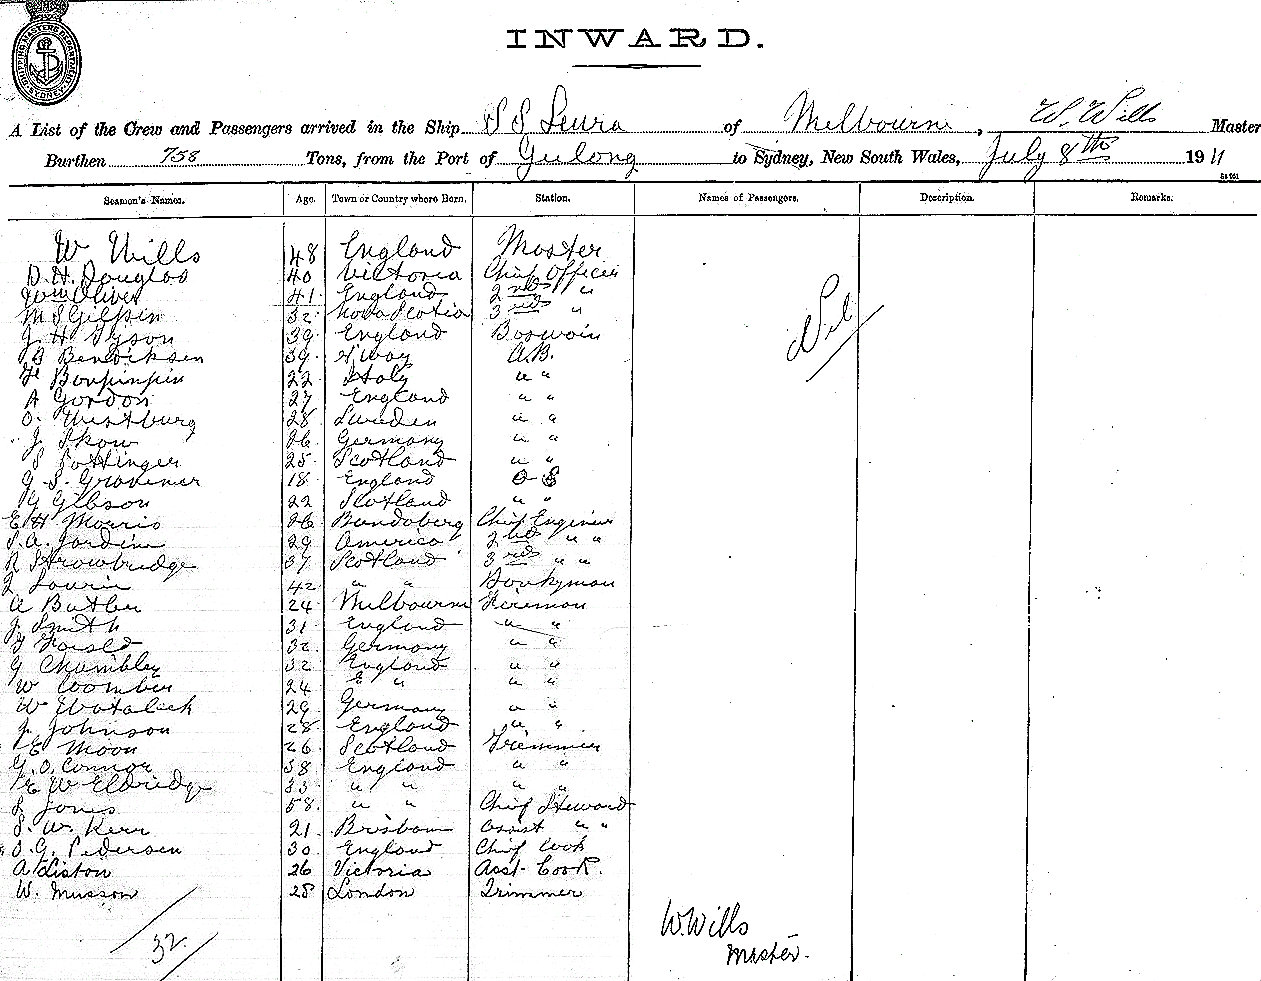 SHIPPING MASTERS DEPARTMENT SYDNEY
INWARD.
A List of the Crew and Passengers arrived in the Ship S S Leura of Melbourne, W. Wills Master
Burthen 758 Tons, from the Port of Geelong to Sydney, New South Wales, July 8th 1911
Seamen's Names. Age. Town or Country where Born. Station. Names of Passengers. Description. Remarks.
W Wills 48 England Master
D. H. Douglas 40 Victoria Chief Officer
Wm Oliver 41 England 2nd "
M S Gilpin 32 Nova Scotia 3rd "
J. H Tyson 39 England Boswain
B Bendicksen 39 N'way A.B.
Nil
22 Italy " "
A Gordon 27 England " "
O. Westburg 28 Sweden " "
J Skow 26 Germany " "
S Pottinger 25 Scotland " "
J. S. Grovener 18 England O S
G Gibson 22 Scotland " "
E H Morris 26 Bundaberg Chief Engineer
S. A. Jardine 29 America 2nd " "
R Strowbridge 37 Scotland 3rd " "
Lourie 42 " " Donkyman
A Butler 24 Melbourne Fireman
J Smith 31 England " "
32 Germany " "
G Chambley 32 England " "
W Coomber 24 E " " "
W 29 Germany " "
J. Johnson 28 England " "
E Moon 26 Scotland Trimmer
G. O. Connor 38 England " "
E W Eldridge 33 " " " "
S Jones 58 " " Chief Steward
S. W. Kerr 21 Brisbane assist " "
O. G. Pedersen 30 England Chief Cook
A Liston 26 Victoria Asst. Cook.
W. Musson 28 London Trimmer
32
W. Wills
Master.